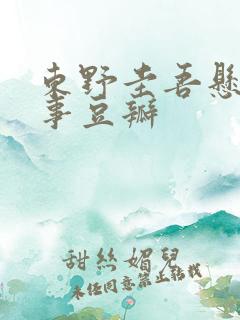 東野圭吾懸
事豆瓣
甜丝媚兒
未任同意禁止轉載